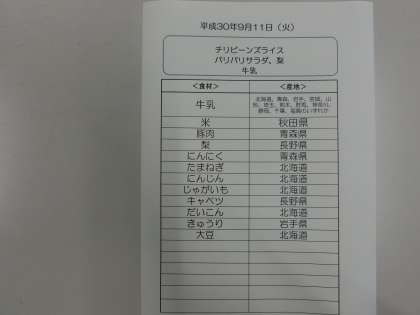 平成30年9月11日（火）
チリビーンズライス
パリパリサラダ、梨
牛乳
＜食材＞ ＜産地＞
牛乳 北海道、青森、岩手、宮城、山
米 秋田県
豚肉 青森県
梨 長野県
にんにく 青森県
たまねぎ 北海道
にんじん 北海道
じゃがいも 北海道
キャベツ 長野県
だいこん 北海道
きゅうり 岩手県
大豆 北海道